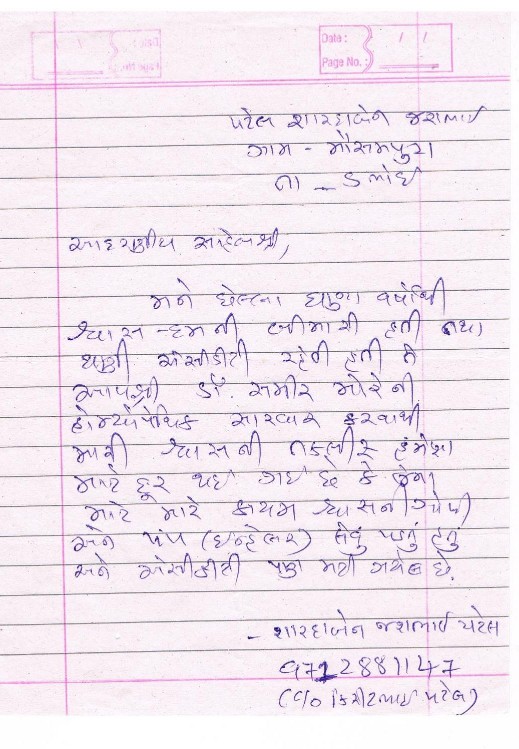 Date : / /
Page No. :
પટેલ શારદાબેન જશભાઈ
ગામ - મૌસમપુરા
તા _ ડભોઇ
આદરણીય સાહેબશ્રી,
મને છેલ્લા ઘણા વર્ષોથી
શ્વાસ-દમની બીમારી હતી તથા
ઘણી એસીડીટી રહેતી હતી તે
આપશ્રી ડૉ. સમીર મોરેની
હોમ્યોપેથિક સારવાર કરવાથી
મારી શ્વાસની તકલીફ હંમેશા
માટે દૂર થઇ ગઇ છે કે જેના
માટે મારે કાયમ શ્વાસની ગોળી
અને પંપ (ઇન્હેલર) લેવું પડતું હતું
અને એસીડીટી પણ મટી ગયેલ છે.
- શારદાબેન જશભાઈ પટેલ
9712881147
(C/o કિરીટભાઈ પટેલ)